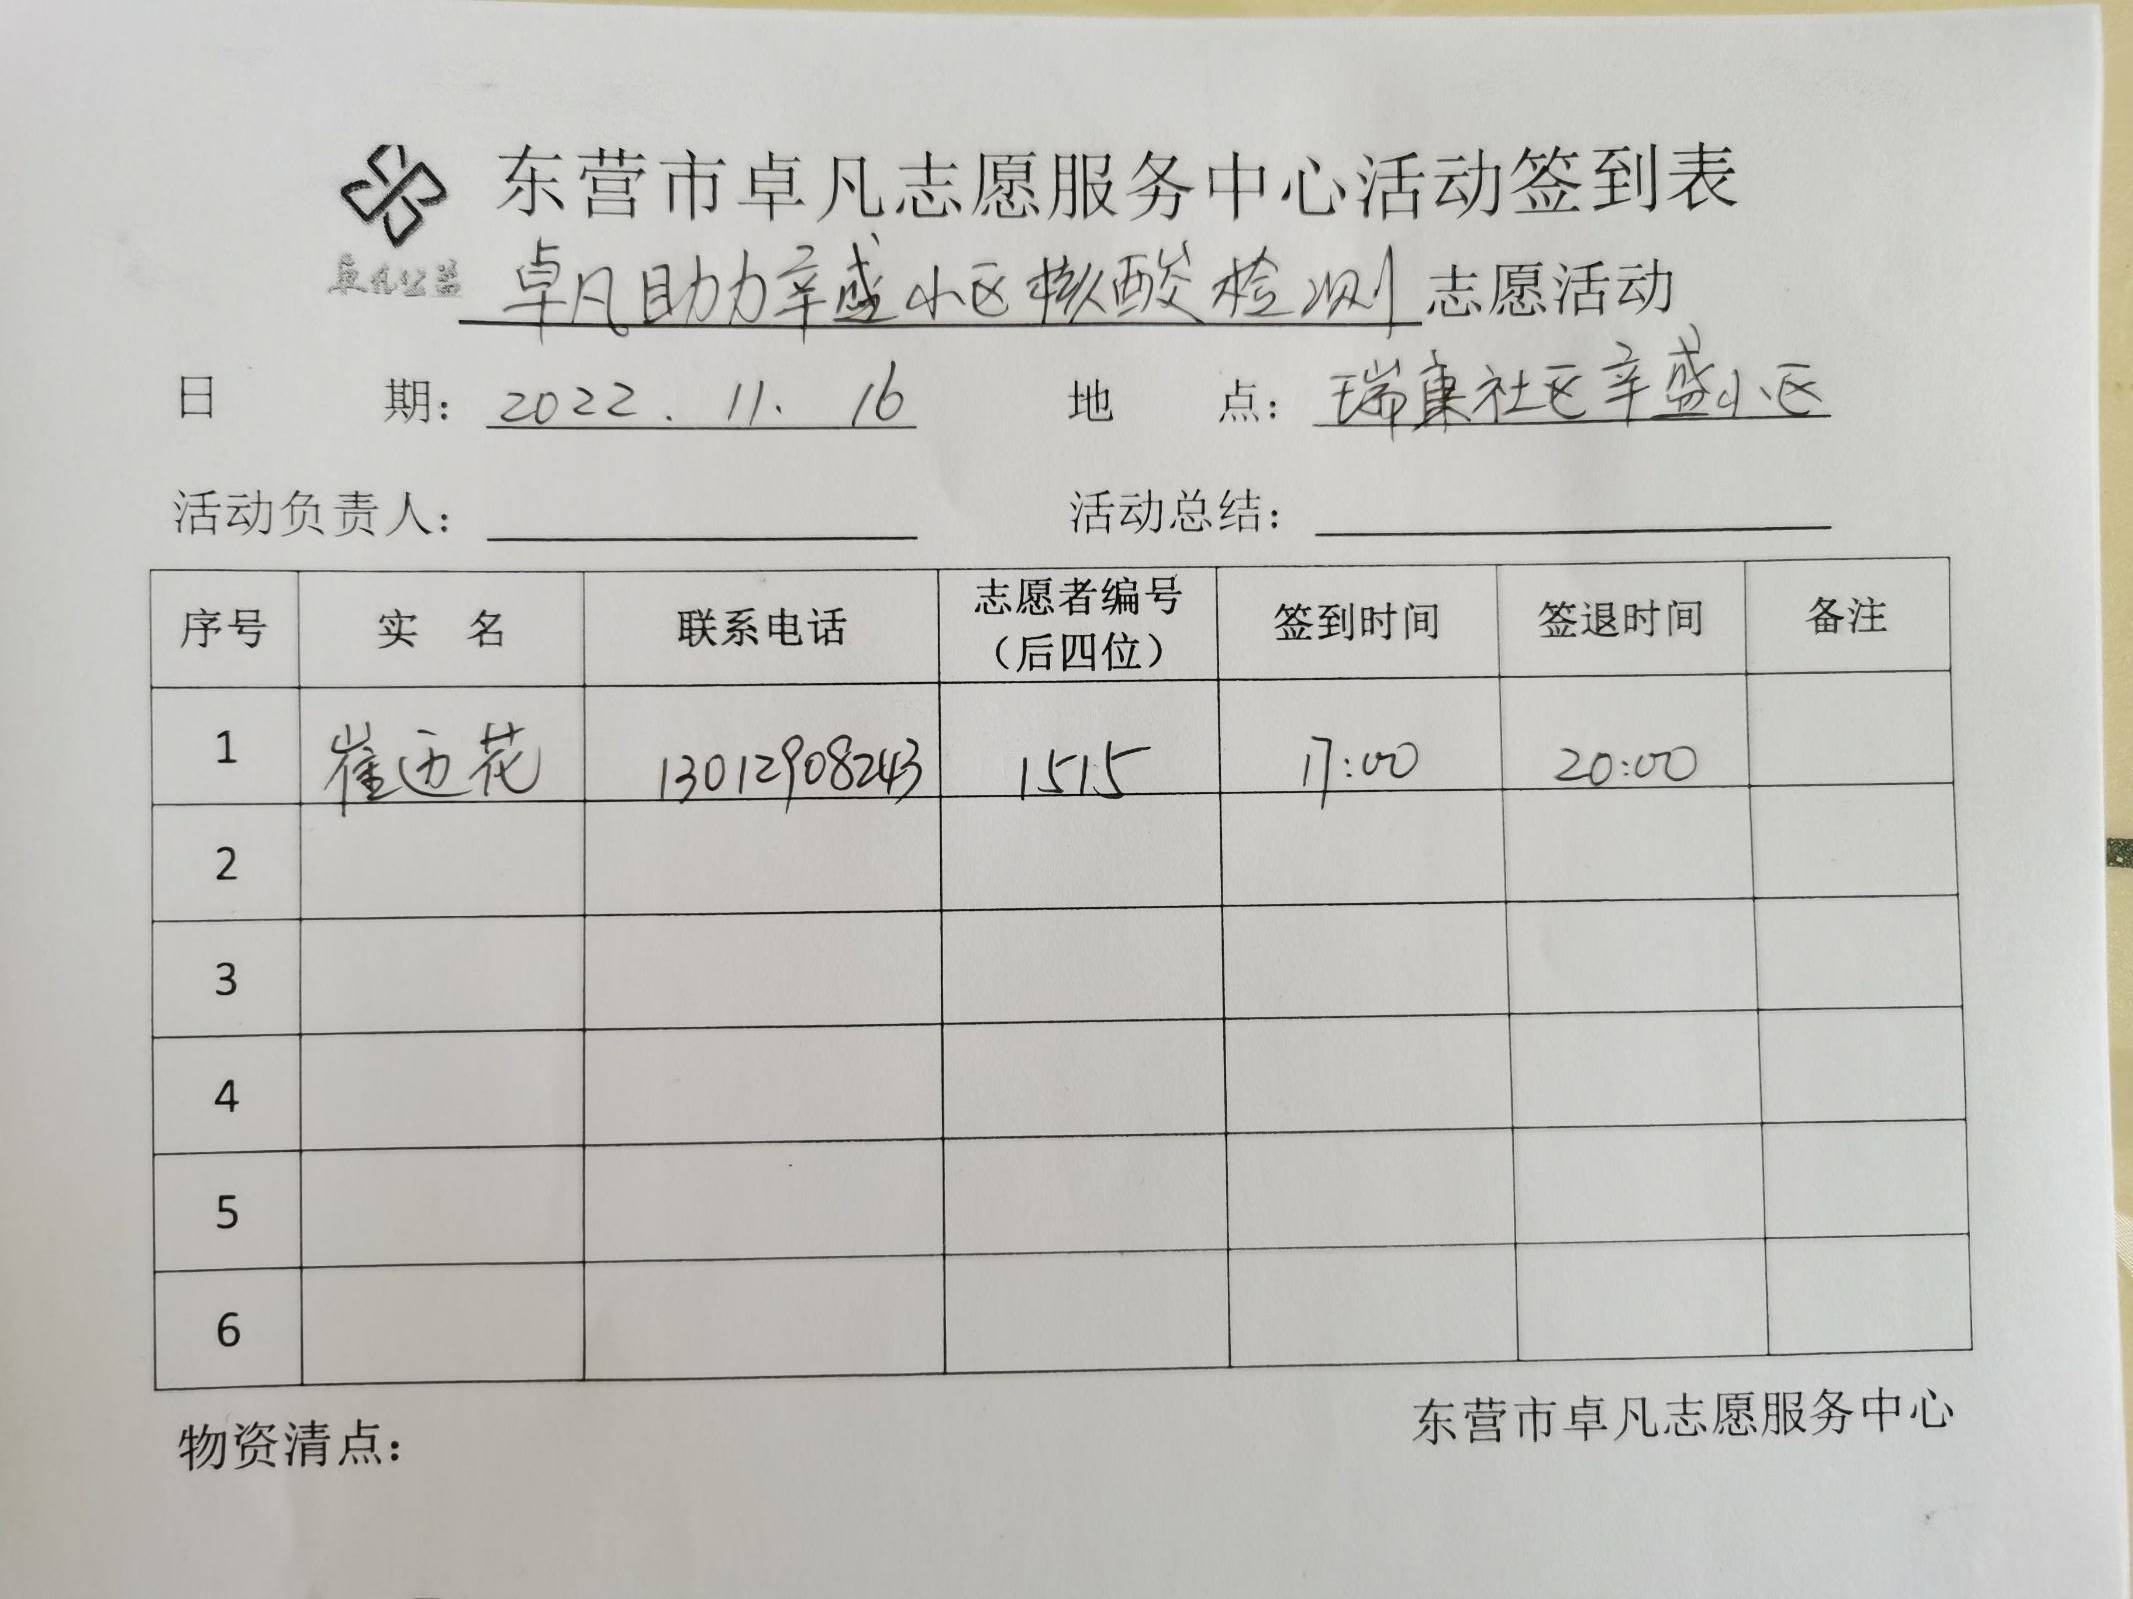 东营市卓凡志愿服务中心活动签到表
卓凡公益
卓凡助力辛盛小区核酸检测志愿活动
日期：2022.11.16 地点：瑞康社区辛盛小区
活动负责人： 活动总结：
序号 实名 联系电话 志愿者编号（后四位） 签到时间 签退时间 备注
1 崔迺花 13012908243 1515 17:00 20:00
2
3
4
5
6
物资清点： 东营市卓凡志愿服务中心